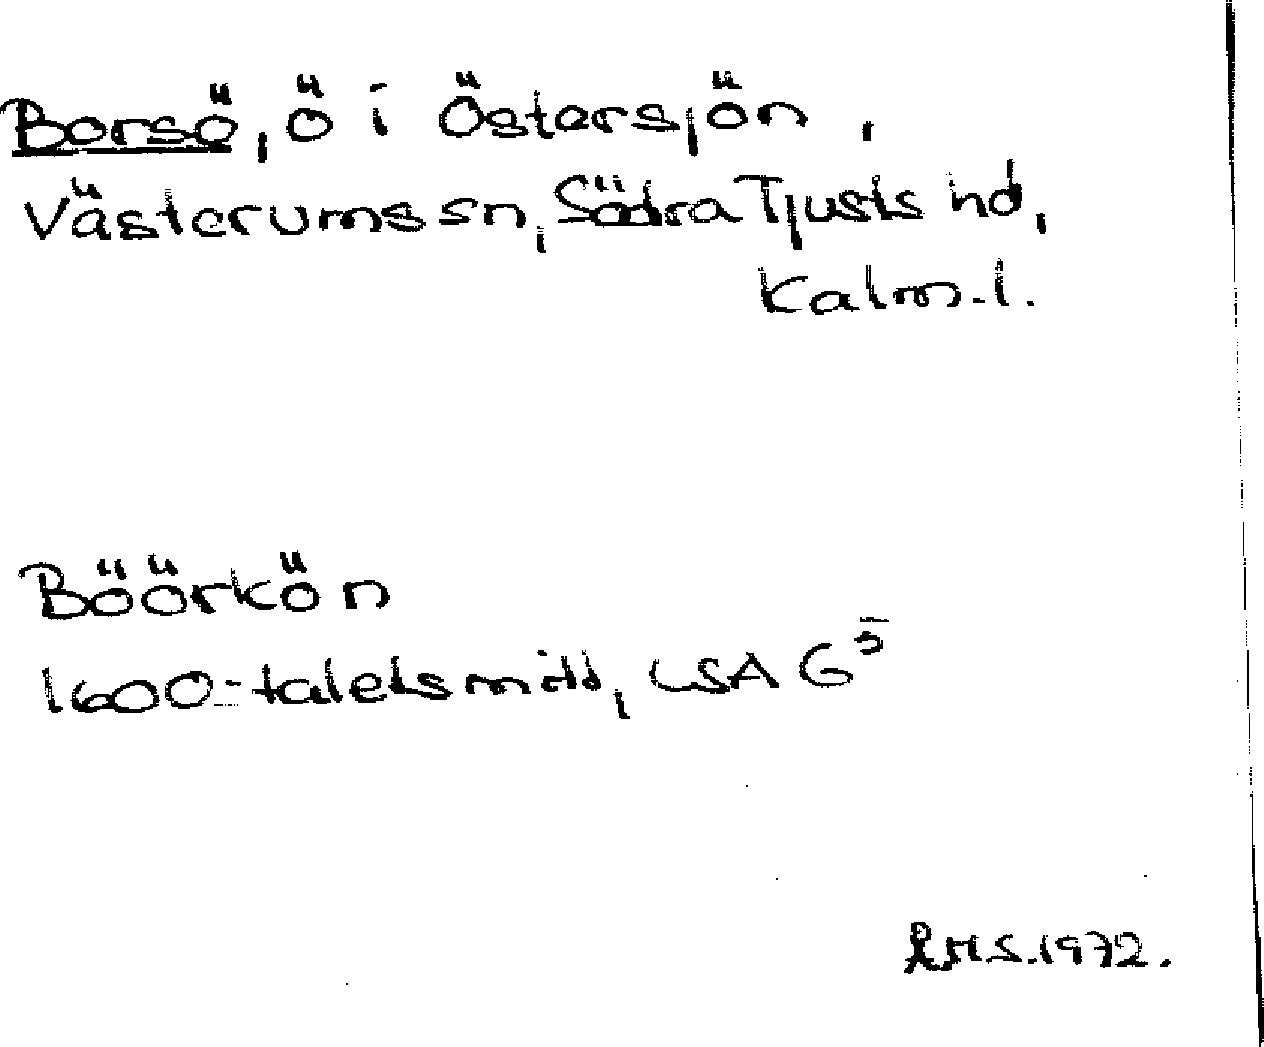 Borsö, ö i Östersjön,
Västerums sn, Södra Tjusts hd,
Kalm. l.
Böörkön
1600-talets mitt, LSA G5
RMS. 1972.